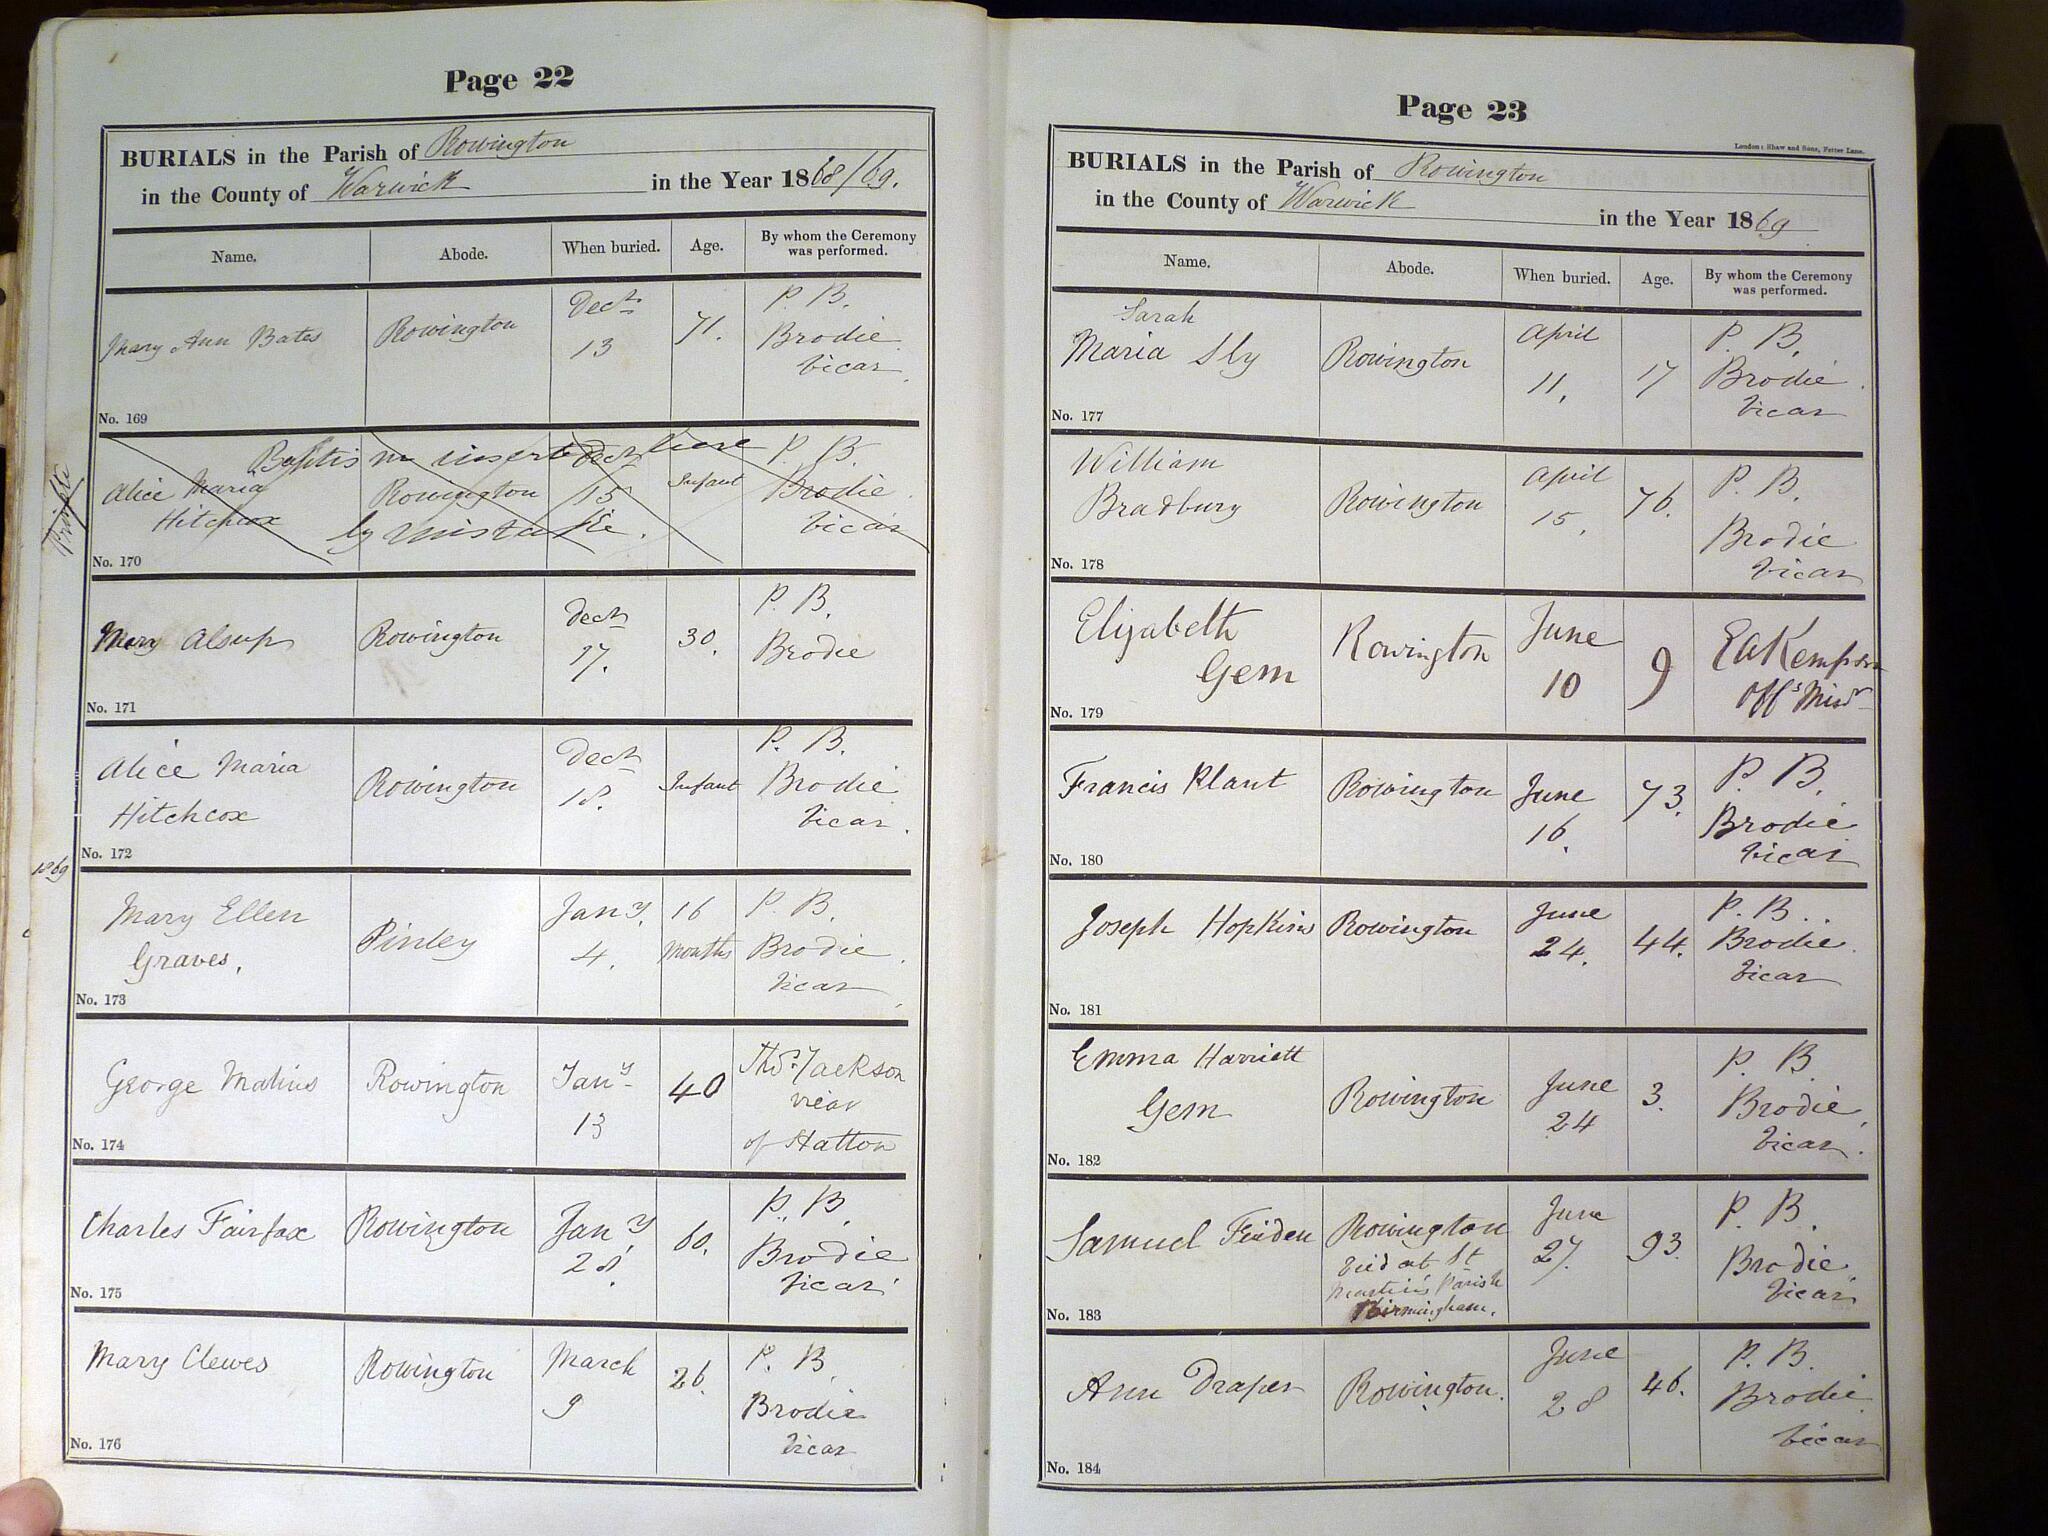 Page 22
BURIALS in the Parish of Rowington
in the County of Warwick in the Year 1868/69.
Name. Abode. When buried. Age. By whom the Ceremony was performed.
Mary Ann Bates Rowington Decr 13 71. P. B. Brodie Vicar
No. 169
Baptism inserted here by mistake.
Alice Maria Hitchcox Rowington Decr 15 Infant P. B. Brodie Vicar
No. 170
Mary Alsup Rowington Decr 17. 30. P. B. Brodie
No. 171
Alice Maria Hitchcox Rowington Decr 18. Infant P. B. Brodie Vicar.
No. 172
1869
Mary Ellen Graves, Pinley Jany. 4. 16 Months P. B. Brodie Vicar
No. 173
George Malins Rowington Jany 13 40 Thos. Jackson vicar of Hatton
No. 174
Charles Fairfax Rowington Jany. 28. 60. P. B. Brodie Vicar
No. 175
Mary Clewes Rowington March 9 26. P. B. Brodie Vicar
No. 176
Page 23
London: Shaw and Sons, Fetter Lane.
BURIALS in the Parish of Rowington
in the County of Warwick in the Year 1869
Name. Abode. When buried. Age. By whom the Ceremony was performed.
Sarah
Maria Sly Rowington April 11, 17 P. B. Brodie. Vicar
No. 177
William Bradbury Rowington April 15, 76. P. B. Brodie Vicar
No. 178
Elizabeth Gem Rowington June 10 9 EAKempson Offg Minr
No. 179
Francis Plant Rowington June 16. 73. P. B. Brodie Vicar
No. 180
Joseph Hopkins Rowington June 24. 44. P. B. Brodie. Vicar
No. 181
Emma Harriett Gem Rowington June 24 3. P. B. Brodie, Vicar.
No. 182
Samuel Rowington died at St Martin's Parish Birmingham. June 27. 93. P. B. Brodie Vicar
No. 183
Ann Draper Rowington. June 28 46. P. B. Brodie. Vicar
No. 184